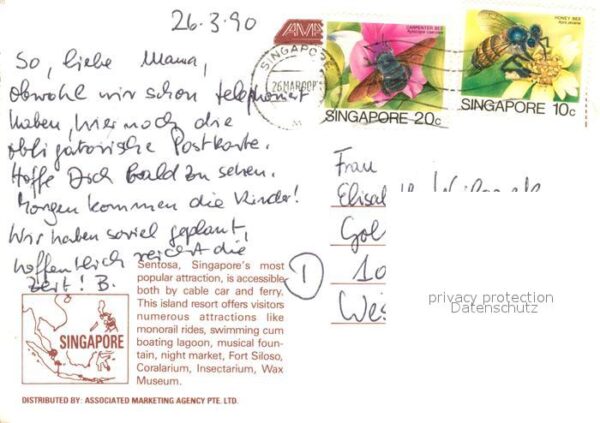 26.3.90
So, liebe Mama,
obwohl wir schon telephoniert
haben, hier noch die
obligatorische Postkarte.
Hoffe Dich bald zu sehen.
Morgen kommen die Kinder!
Wir haben soviel geplant,
hoffentlich reicht die
Zeit! B.
AMA
SINGAPORE
26MAR90
CARPENTER BEE
SINGAPORE 20c
HONEY BEE
SINGAPORE 10c
Frau
1
privacy protection
Datenschutz
Sentosa, Singapore's most
popular attraction, is accessible
both by cable car and ferry.
This island resort offers visitors
numerous attractions like
monorail rides, swimming cum
boating lagoon, musical foun-
tain, night market, Fort Siloso,
Coralarium, Insectarium, Wax
Museum.
SINGAPORE
DISTRIBUTED BY: ASSOCIATED MARKETING AGENCY PTE. LTD.